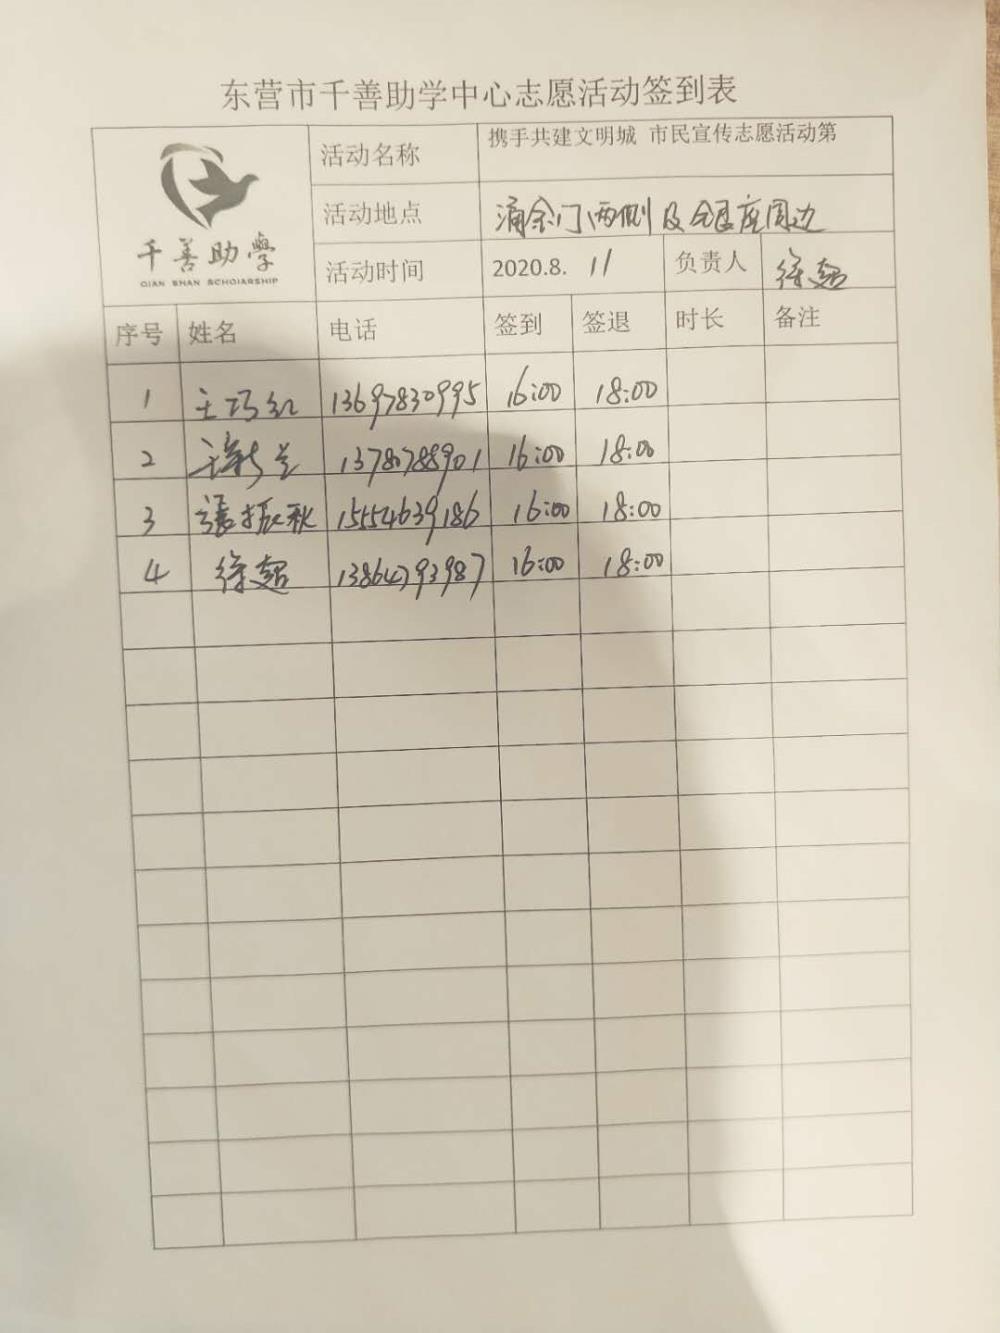 东营市千善助学中心志愿活动签到表
千善助學
QIAN SHAN SCHOLARSHIP
活动名称 携手共建文明城 市民宣传志愿活动第
活动地点 涌金门两侧及银座周边
活动时间 2020.8. 11 负责人 徐超
序号 姓名 电话 签到 签退 时长 备注
1 王巧红 13697830995 16:00 18:00
2 13780788901 16:00 18:00
3 張振秋 15554639186 16:00 18:00
4 徐超 13864793987 16:00 18:00